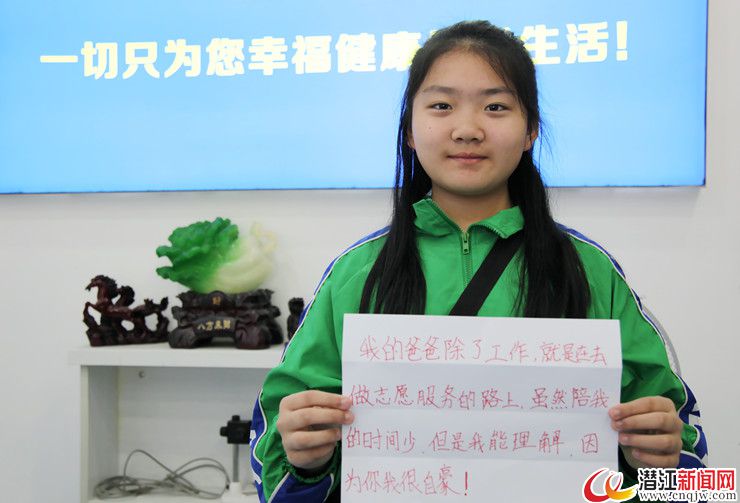 一切只为您幸福健康生活!
八方来财
我的爸爸除了工作,就是在去
做志愿服务的路上,虽然陪我
的时间少,但是我能理解,因
为你我很自豪!
潜江新闻网
www.cnqjw.com